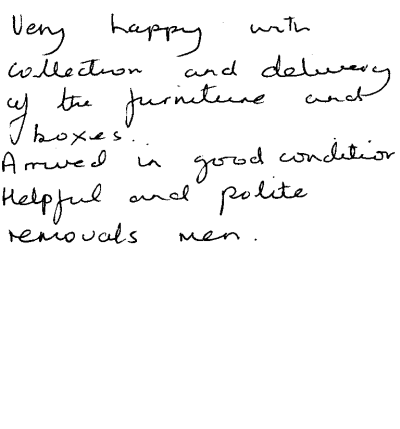 Very happy with
collection and delivery
of the furniture and
boxes..
Arrived in good condition
Helpful and polite
removals men.